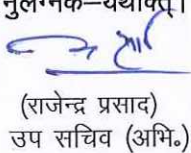 नुलग्नक–यथोक्त।
(राजेन्द्र प्रसाद)
उप सचिव (अभि०)